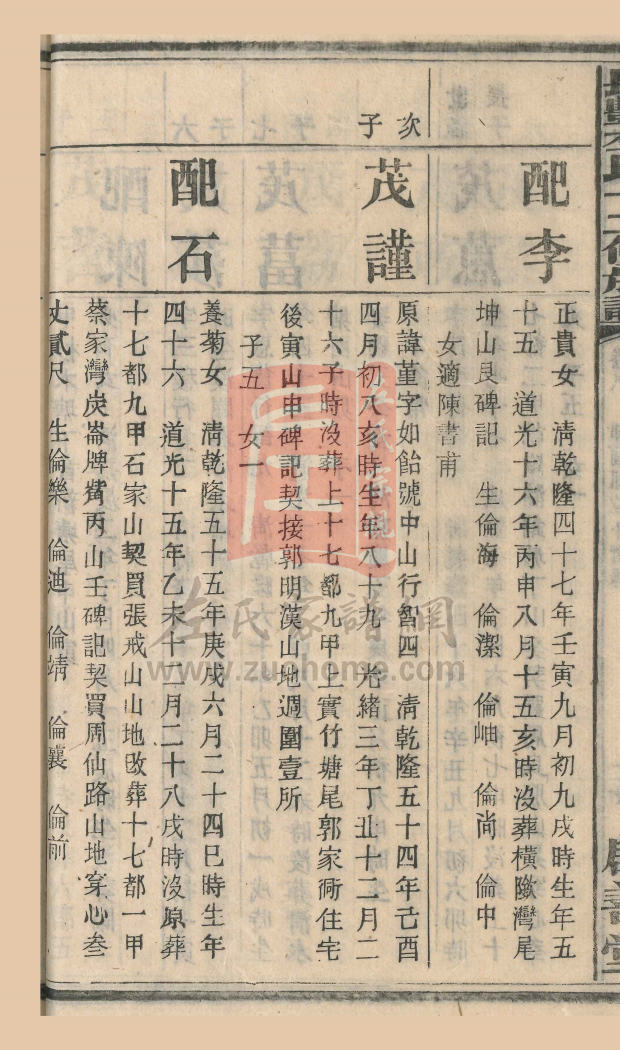 配李
正貴女　清乾隆四十七年壬寅九月初九戌時生年五
十五　道光十六年丙申八月十五亥時沒葬橫𡼏灣尾
坤山艮碑記　生倫海　倫潔　倫岫　倫尚　倫中
女適陳書甫
次子
茂謹
原諱堇字如飴號中山行智四　清乾隆五十四年己酉
四月初八亥時生年八十九　光緒三年丁丑十二月二
十六子時沒葬上十七都九甲上實竹塘尾郭家衕住宅
後寅山申碑記契接郭明漢山地週圍壹所
子五　女一
配石
養菊女　清乾隆五十五年庚戌六月二十四巳時生年
四十六　道光十五年乙未十二月二十八戌時沒原葬
十七都九甲石家山契買張戒山山地改葬十七都一甲
蔡家灣炭崙牌背丙山壬碑記契買周仙路山地穿心叄
丈貳尺　生倫樂　倫迪　倫靖　倫襄　倫前
左氏家譜網
www.zuohome.com